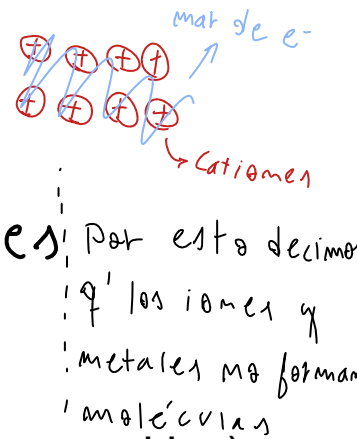 mar de e-
+ + + +
+ + + +
Cationes
es
por esto decimo
q' los iones y
metales no forman
moléculas